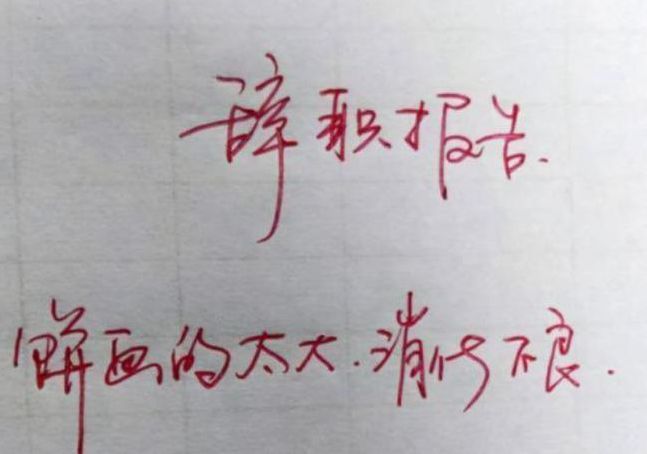 辞职报告.
饼画的太大.消化不良.